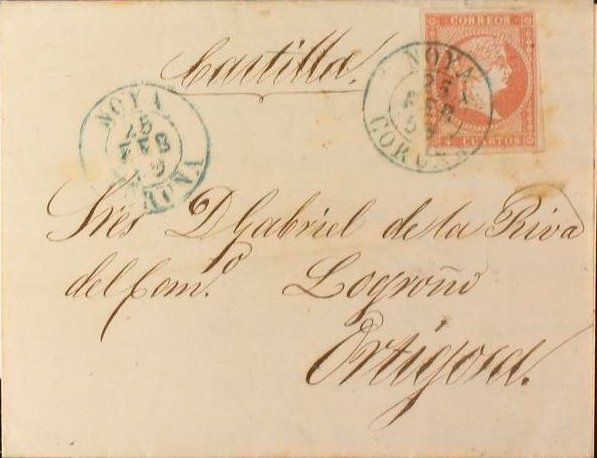 CORREOS
4 CUARTOS
NOYA
25
FEB
59
CORUÑA
Castilla.
NOYA
25
FEB
59
CORUÑA
Sres D. Gabriel de la Riva
del Com.o Logroño
Ortigosa.